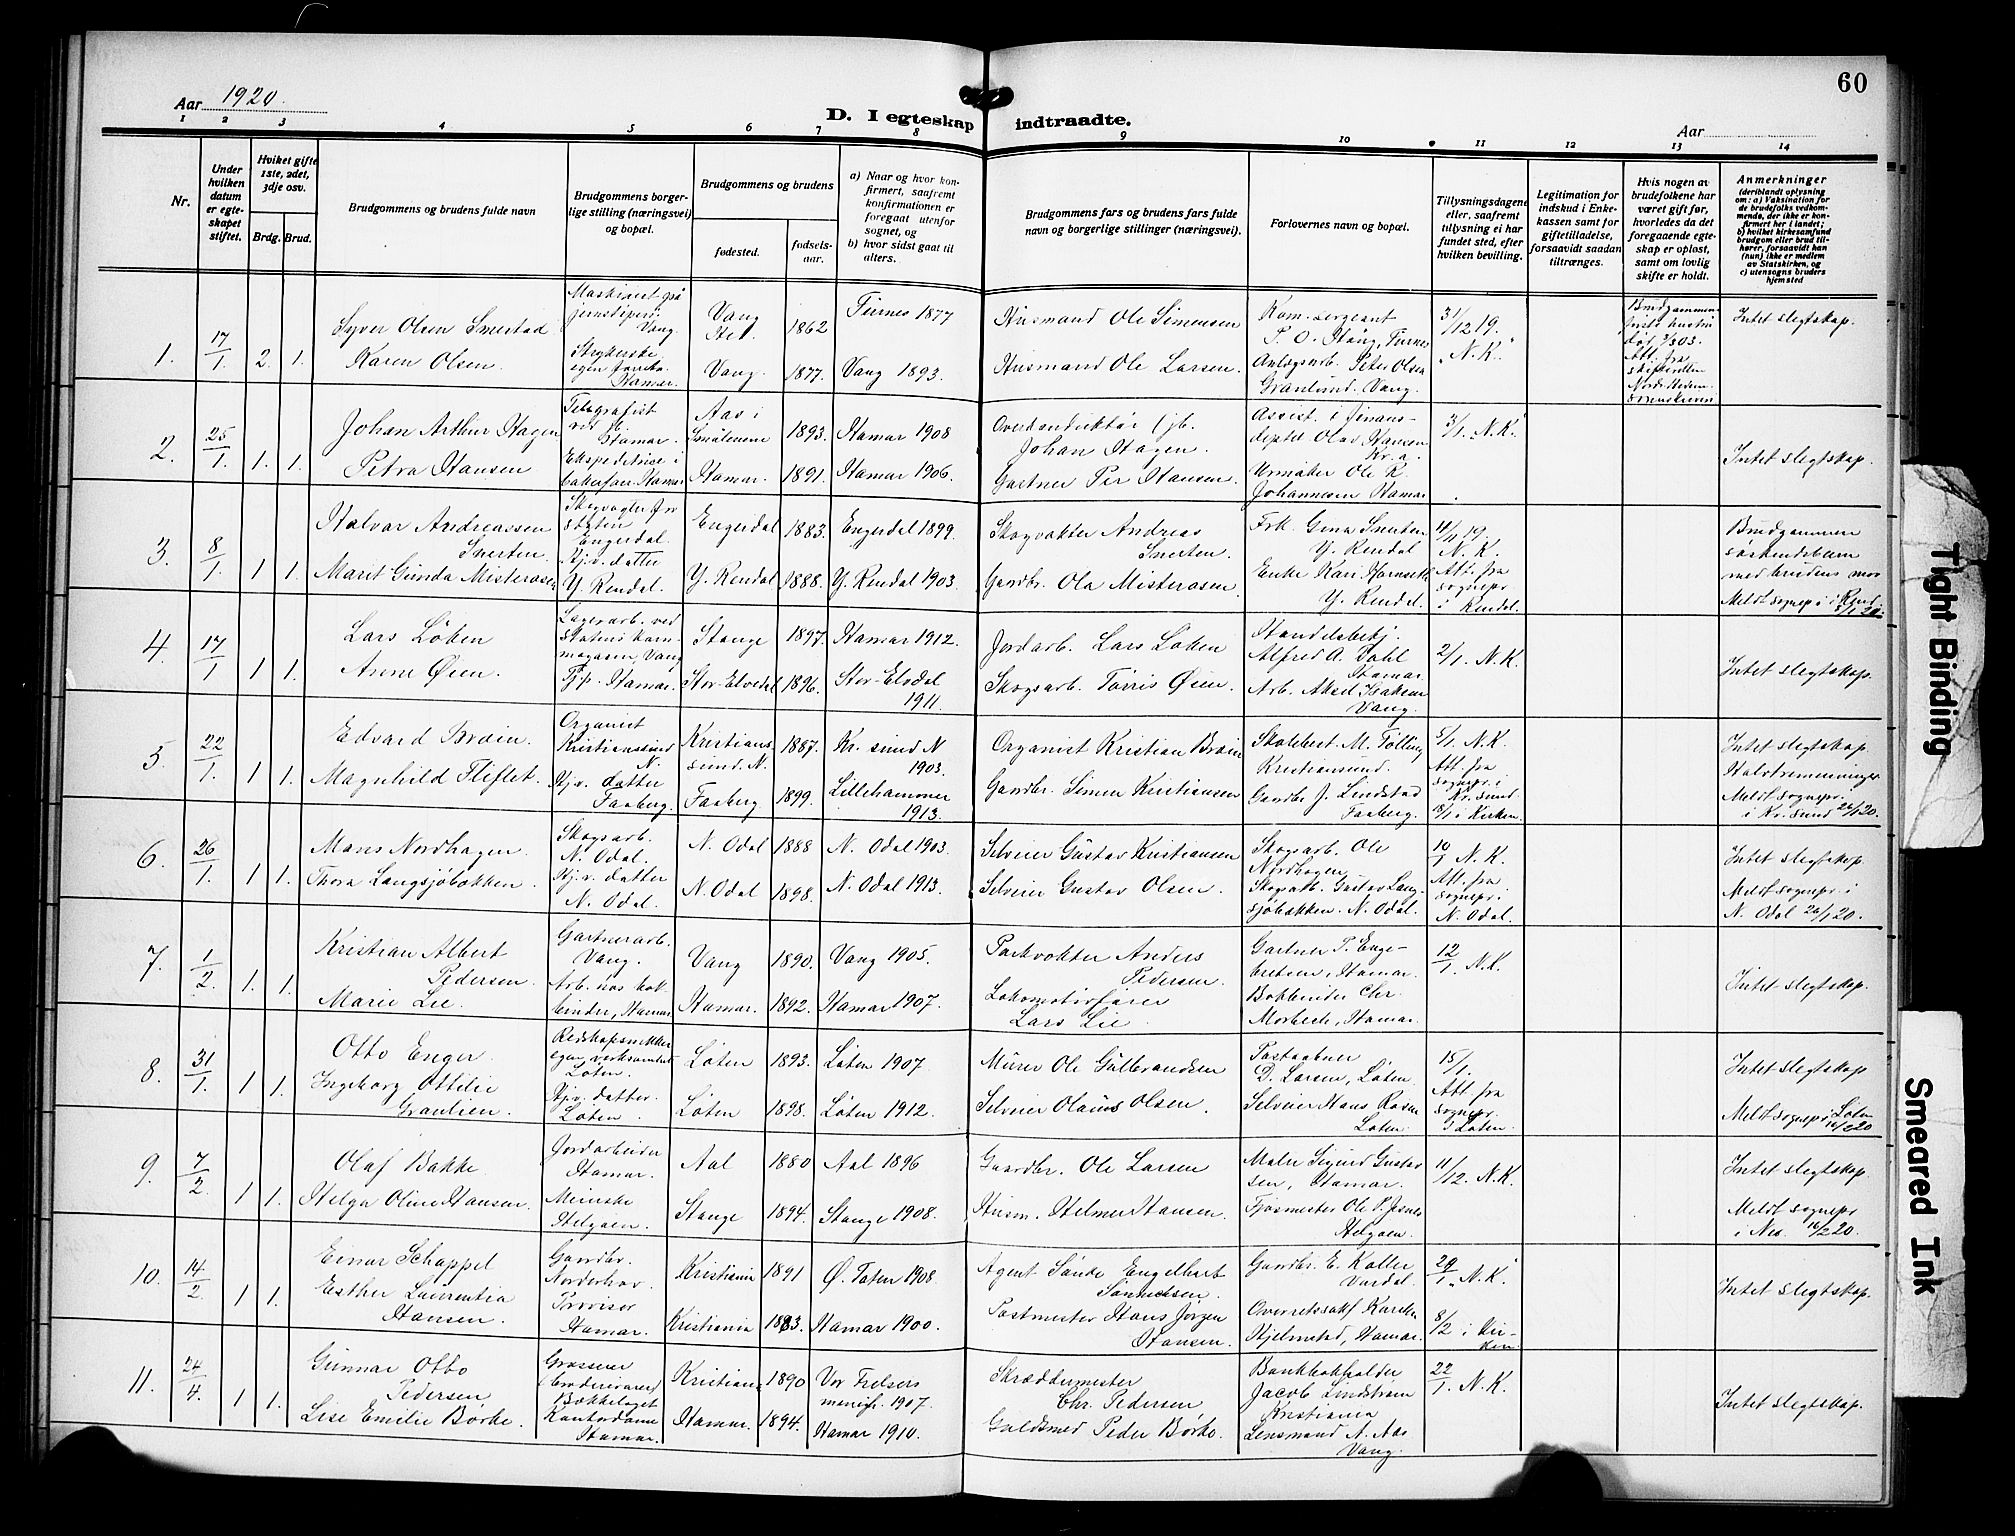 60
Aar 1920.
D. I egteskap indtraadte.
Aar
1 2 3 4 5 6 7 8 9 10 11 12 13 14
Nr.
Under hvilken datum er egte-skapet stiftet.
Hvilket gifte 1ste, 2det, 3dje osv.
Brdg. Brud.
Brudgommens og brudens fulde navn
Brudgommens borger-lige stilling (næringsvei) og bopæl.
Brudgommens og brudens
fødested.
fødsels-aar.
a) Naar og hvor kon-firmert, saafremt konfirmationen er foregaat utenfor sognet, og
b) hvor sidst gaat til alters.
Brudgommens fars og brudens fars fulde navn og borgerlige stillinger (næringsvei).
Forlovernes navn og bopæl.
Tillysningsdagene eller, saafremt tillysning ei har fundet sted, efter hvilken bevilling.
Legitimation for indskud i Enke-kassen samt for giftetilladelse, forsaavidt saadan tiltrænges.
Hvis nogen av brudefolkene har været gift før, hvorledes da det foregaaende egte-skap er opløst, samt om lovlig skifte er holdt.
Anmerkninger
(deriblandt oplysning om: a) Vaksination for de brudefolks vedkom-mende, der ikke er kon-firmert her i landet; b) hvilket kirkesamfund brudgom eller brud til-hører, forsaavidt han (hun) ikke er medlem av Statskirken, og c) utensogns bruders hjemsted
1. 17/1 2. 1.
Syver Olsen Smestad
Karen Olsen.
Vang 1862
Vang. 1877. Vang 1893.
Furnes 1877
Husmand Ole Simensen
Husmand Ole Larsen.
Kom. sergeant
Anlægsarb. Peter Olsen
Granlund. Vang.
31/12 19.
N. K.
Intet slegtskap.
2. 25/1. 1. 1.
Johan Arthur Hagen
Petra Hansen
Telegrafist
Hamar.
Aas i
Smålenene 1893. Hamar 1908
Hamar. 1891. Hamar 1906.
Overkonduktør
Johan Hagen.
Gartner Per Hansen.
Urmaker Ole K.
Johannesen Hamar
3/1. N. K.
Intet slegtskap.
3. 8/1. 1 1.
Halvar Andreassen
Snerten.
Marit Gunda Misterosen
Engerdal
Hj.v. datter
Y. Rendal.
Engerdal 1883. Engerdal 1899.
Y. Rendal 1888. Y. Rendal 1903.
Skogvokter Andreas
Snerten.
Gaardbr. Ola Misterosen.
Frk. Gina Snerten
Y. Rendal
Enke Kari
Y. Rendal.
N. K.
Att. fra
sognepr
i Rendal.
Brudgommen
søskendebarn
med brudens mor
4. 17/1 1 1.
Lars Løken
Anne Øien.
Lagerarb. ved
statens korn-
magasin, Vang
Tjp. Hamar.
Stange 1897. Hamar 1912.
Stor-Elvedal 1896. Stor-Elvdal
1911.
Jordarb. Lars Løken
Skogsarb. Torris Øien.
Handelsbetj.
Alfred A. Dahl
Hamar.
Arb. Aksel Isaksen
Vang.
2/1. N. K.
Intet slegtskap.
5. 22/1. 1 1.
Edvard Bræin.
Magnhild Fliflet.
Organist
Kristianssund
N.
Hj.v. datter
Faaberg.
Kristians-
sund. N. 1887. Kr. sund N
1903.
Faaberg 1899. Lillehammer
1913.
Organist Kristian Bræin
Gaardbr. Simen Kristiansen
Skolebest. M. Tølling
Kristiansund.
Gaardbr J. Lindstad
Faaberg.
5/1. N. K.
Att. fra
sognepr. i
Kr. sund.
18/1 i Kirken
Intet slegtskap
Halvtremenninger
Meldt sognepr.
i Kr. sund 26/1 20.
6. 26/1. 1 1.
Mons Nordhagen.
Thora Langsjøbækken.
Skogsarb.
N. Odal.
Hj.v. datter
N. Odal.
N. Odal 1888 N. Odal 1903.
N. Odal 1898. N. Odal 1913.
Selveier Gustav Kristiansen
Selveier Gustav Olsen.
Skogsarb. Ole
Nordhagen,
Skogsarb. Gustav Lang-
sjøbækken. N. Odal.
10/1 N. K.
Att. fra
sognepr.
N. Odal.
Intet slegtskap
Meldt sognepr. i
N. Odal 26/1 20.
7. 1/2. 1. 1.
Kristian Albert
Pedersen.
Marie Lie.
Gartnerarb.
Vang.
Arb. hos bok-
binder, Hamar
Vang 1890. Vang 1905.
Hamar. 1892. Hamar 1907.
Parkvokter Anders
Pedersen.
Lokomotivfører
Lars Lie.
Gartner P. Enge-
bretsen, Hamar.
Bokbinder Chr.
Morbech, Hamar.
12/1. N. K.
Intet slegtskap.
8. 31/1. 1 1.
Otto Enger.
Ingeborg Ottilie
Granlien.
Løten.
Hj.v. datter.
Løten.
Løten 1893. Løten 1907.
Løten 1898. Løten 1912.
Murer Ole Gulbrandsen
Selveier Olaus Olsen.
Postaabner
D. Larsen, Løten
Selveier Hans Rosen
Løten.
15/1.
Att. fra
sognepr.
i Løten.
Intet slegtskap
Meldt sognepr i Løten
9. 7/2. 1 1.
Olaf Bakke
Helga Oline Hansen.
Jordarbeider
Hamar.
Meierske
Helgøen.
Aal 1880 Aal 1896
Stange 1894. Stange 1908.
Gaardbr. Ole Larsen
Husm. Helmer Hansen.
Maler Sigurd Gustav
sen, Hamar.
Fjøsmester Ole P. Jesnes
Helgøen.
11/12. N. K.
Intet slegtskap.
Meldt sognepr
i Nes 16/2 20.
10. 14/2. 1 1.
Einar Schappel
Esther Laurentia
Hansen.
Gaardbr.
Norderhov.
Provisor
Hamar.
Kristiania 1891 Ø. Toten 1908.
Kristiania 1883. Hamar 1900.
Agent Sünde Engelhart
Postmester Hans Jørgen
Hansen.
Gaardbr. E. Koller
Vardal.
Overretssakf Karsten
Hjelmstad, Hamar.
29/1. N. K.
8/2 i Kir-
ken.
Intet slegtskap.
11. 24/4. 1 1.
Gunnar Otto
Pedersen
Lise Emilie Børke.
Grosserer
Bækkelaget
Kontordame
Hamar.
Kristiania 1890 Vor Frelsers
menigh. 1907.
Hamar. 1894. Hamar 1910.
Skræddermester
Chr. Pedersen
Guldsmed Peder Børke.
Bankbokholder
Jacob Lindstrøm
Kristiania
Lensmand N. Aas
Vang.
22/1. N. K.
Intet slegtskap.
Tight Binding
Smeared Ink